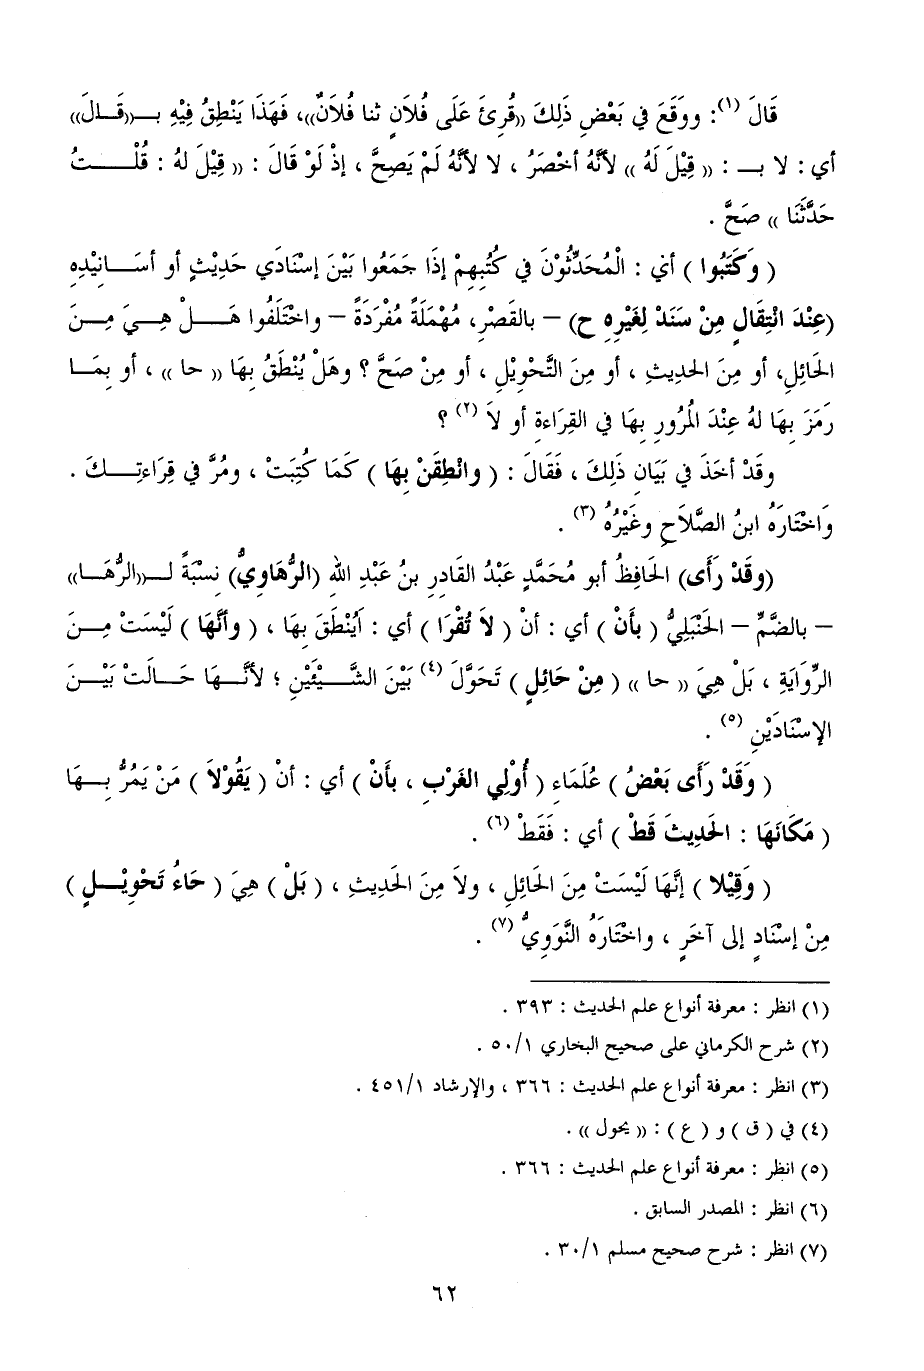 قَالَ (١): ووَقَعَ في بَعْضِ ذَلِكَ «قُرِئَ عَلَى فُلاَنٍ ثنا فُلاَنٌ»، فَهَذَا يَنْطِقُ فِيْهِ بـ«قَالَ»
أي : لا بـ : « قِيْلَ لَهُ » لأنَّهُ أخْصَرُ ، لا لأنَّهُ لَمْ يَصِحَّ ، إذْ لَوْ قَالَ : « قِيْلَ لَهُ : قُلْتُ
حَدَّثَنَا » صَحَّ .
( وَكَتَبُوا ) أي : الْمُحَدِّثُوْنَ في كُتُبِهِمْ إذَا جَمَعُوا بَيْنَ إسْنَادَي حَدِيْثٍ أو أسَانِيْدِهِ
(عِنْدَ انْتِقَالٍ مِنْ سَنَدْ لِغَيْرِهِ ح) – بالقَصْرِ، مُهْمَلَةً مُفْرَدَةً – واخْتَلَفُوا هَلْ هِيَ مِنَ
الحَائِلِ، أو مِنَ الحَدِيثِ ، أو مِنَ التَّحْوِيْلِ ، أو مِنْ صَحَّ ؟ وهَلْ يُنْطَقُ بِهَا « حا » ، أو بِمَا
رَمَزَ بِهَا لهُ عِنْدَ الْمُرُورِ بِهَا في القِرَاءةِ أو لاَ (٢) ؟
وقَدْ أخَذَ في بَيَانِ ذَلِكَ ، فَقَالَ : ( وانْطِقَنْ بِهَا ) كَمَا كُتِبَتْ ، ومُرَّ في قِرَاءتِكَ .
وَاخْتَارَهُ ابنُ الصَّلاَحِ وغَيْرُهُ (٣) .
(وقَدْ رَأَى) الحَافِظُ أبو مُحَمَّدٍ عَبْدُ القَادِرِ بنُ عَبْدِ اللهِ (الرُّهَاوِيُّ) نِسْبَةً لـ«الرُّهَا»
– بالضَّمِّ – الحَنْبَلِيُّ ( بأَنْ ) أي : أنْ ( لاَ تُقْرَا ) أي : أَيُنْطَقَ بِهَا ، ( وأَنَّهَا ) لَيْسَتْ مِنَ
الرِّوَايَةِ ، بَلْ هِيَ « حا » ( مِنْ حَائِلٍ ) تَحَوَّلَ (٤) بَيْنَ الشَّيْئَيْنِ ؛ لأنَّهَا حَالَتْ بَيْنَ
الإسْنَادَيْنِ (٥) .
( وَقَدْ رَأَى بَعْضُ ) عُلَمَاءِ ( أُوْلِي الغَرْبِ ، بأَنْ ) أي : أنْ ( يَقُوْلاَ ) مَنْ يَمُرُّ بِهَا
( مَكَانَهَا : الحَدِيثَ قَطْ ) أي : فَقَطْ (٦) .
( وَقِيْلا ) إنَّهَا لَيْسَتْ مِنَ الحَائِلِ ، ولاَ مِنَ الحَدِيثِ ، ( بَلْ ) هِيَ ( حَاءُ تَحْوِيْلٍ )
مِنْ إسْنَادٍ إلى آخَرٍ ، واخْتَارَهُ النَّوَوِيُّ (٧) .
(١) انظر : معرفة أنواع علم الحديث : ٣٩٣ .
(٢) شرح الكرماني على صحيح البخاري ١/ ٥٠ .
(٣) انظر : معرفة أنواع علم الحديث : ٣٦٦ ، والإرشاد ١/ ٤٥١ .
(٤) في ( ق ) و ( ع ) : « يحول » .
(٥) انظر : معرفة أنواع علم الحديث : ٣٦٦ .
(٦) انظر : المصدر السابق .
(٧) انظر : شرح صحيح مسلم ١/ ٣٠ .
٦٢